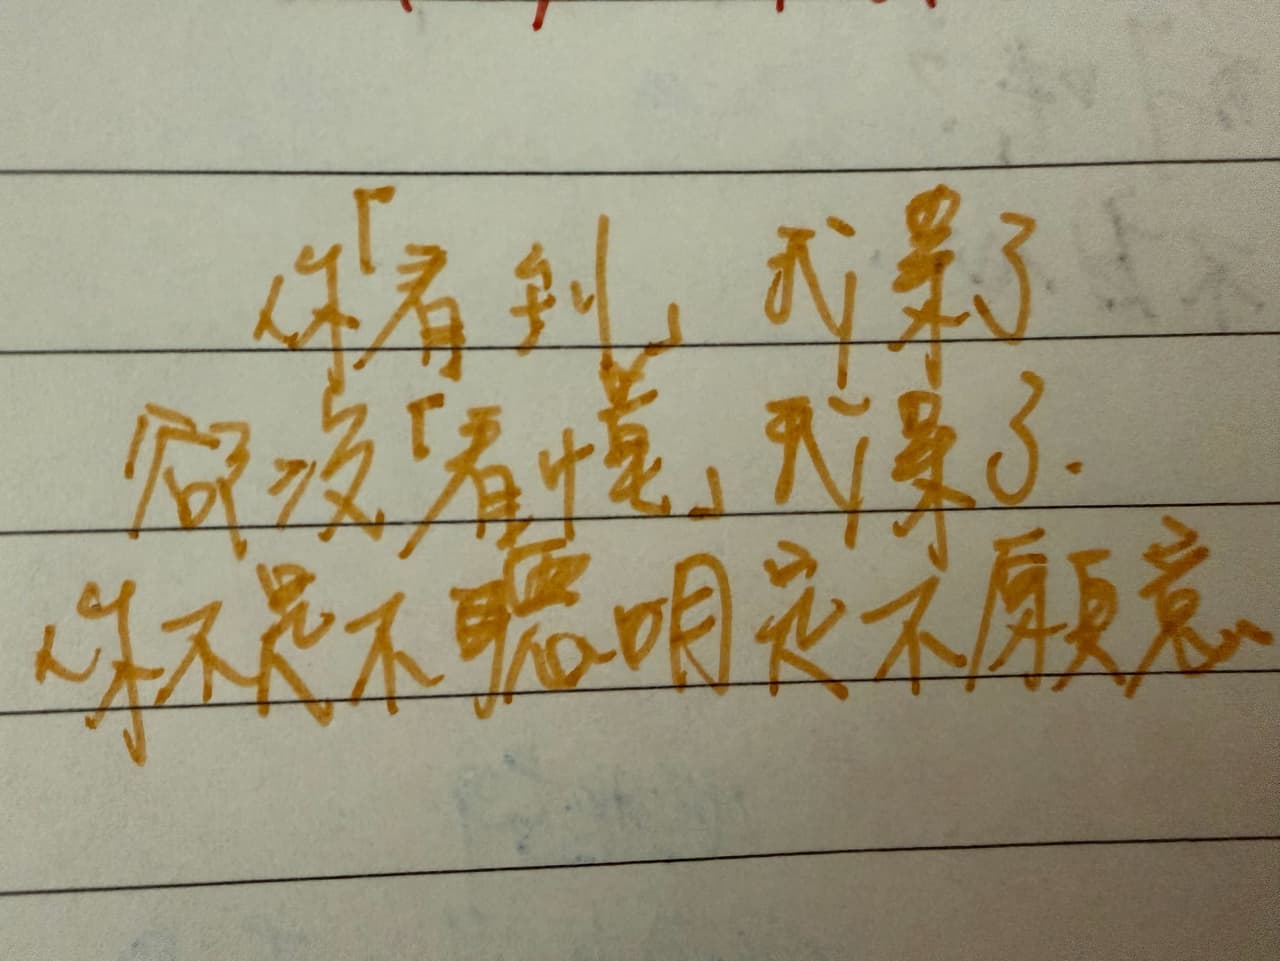 你「看到」我累了
卻沒「看懂」我累了.
你不是不聰明是不願意